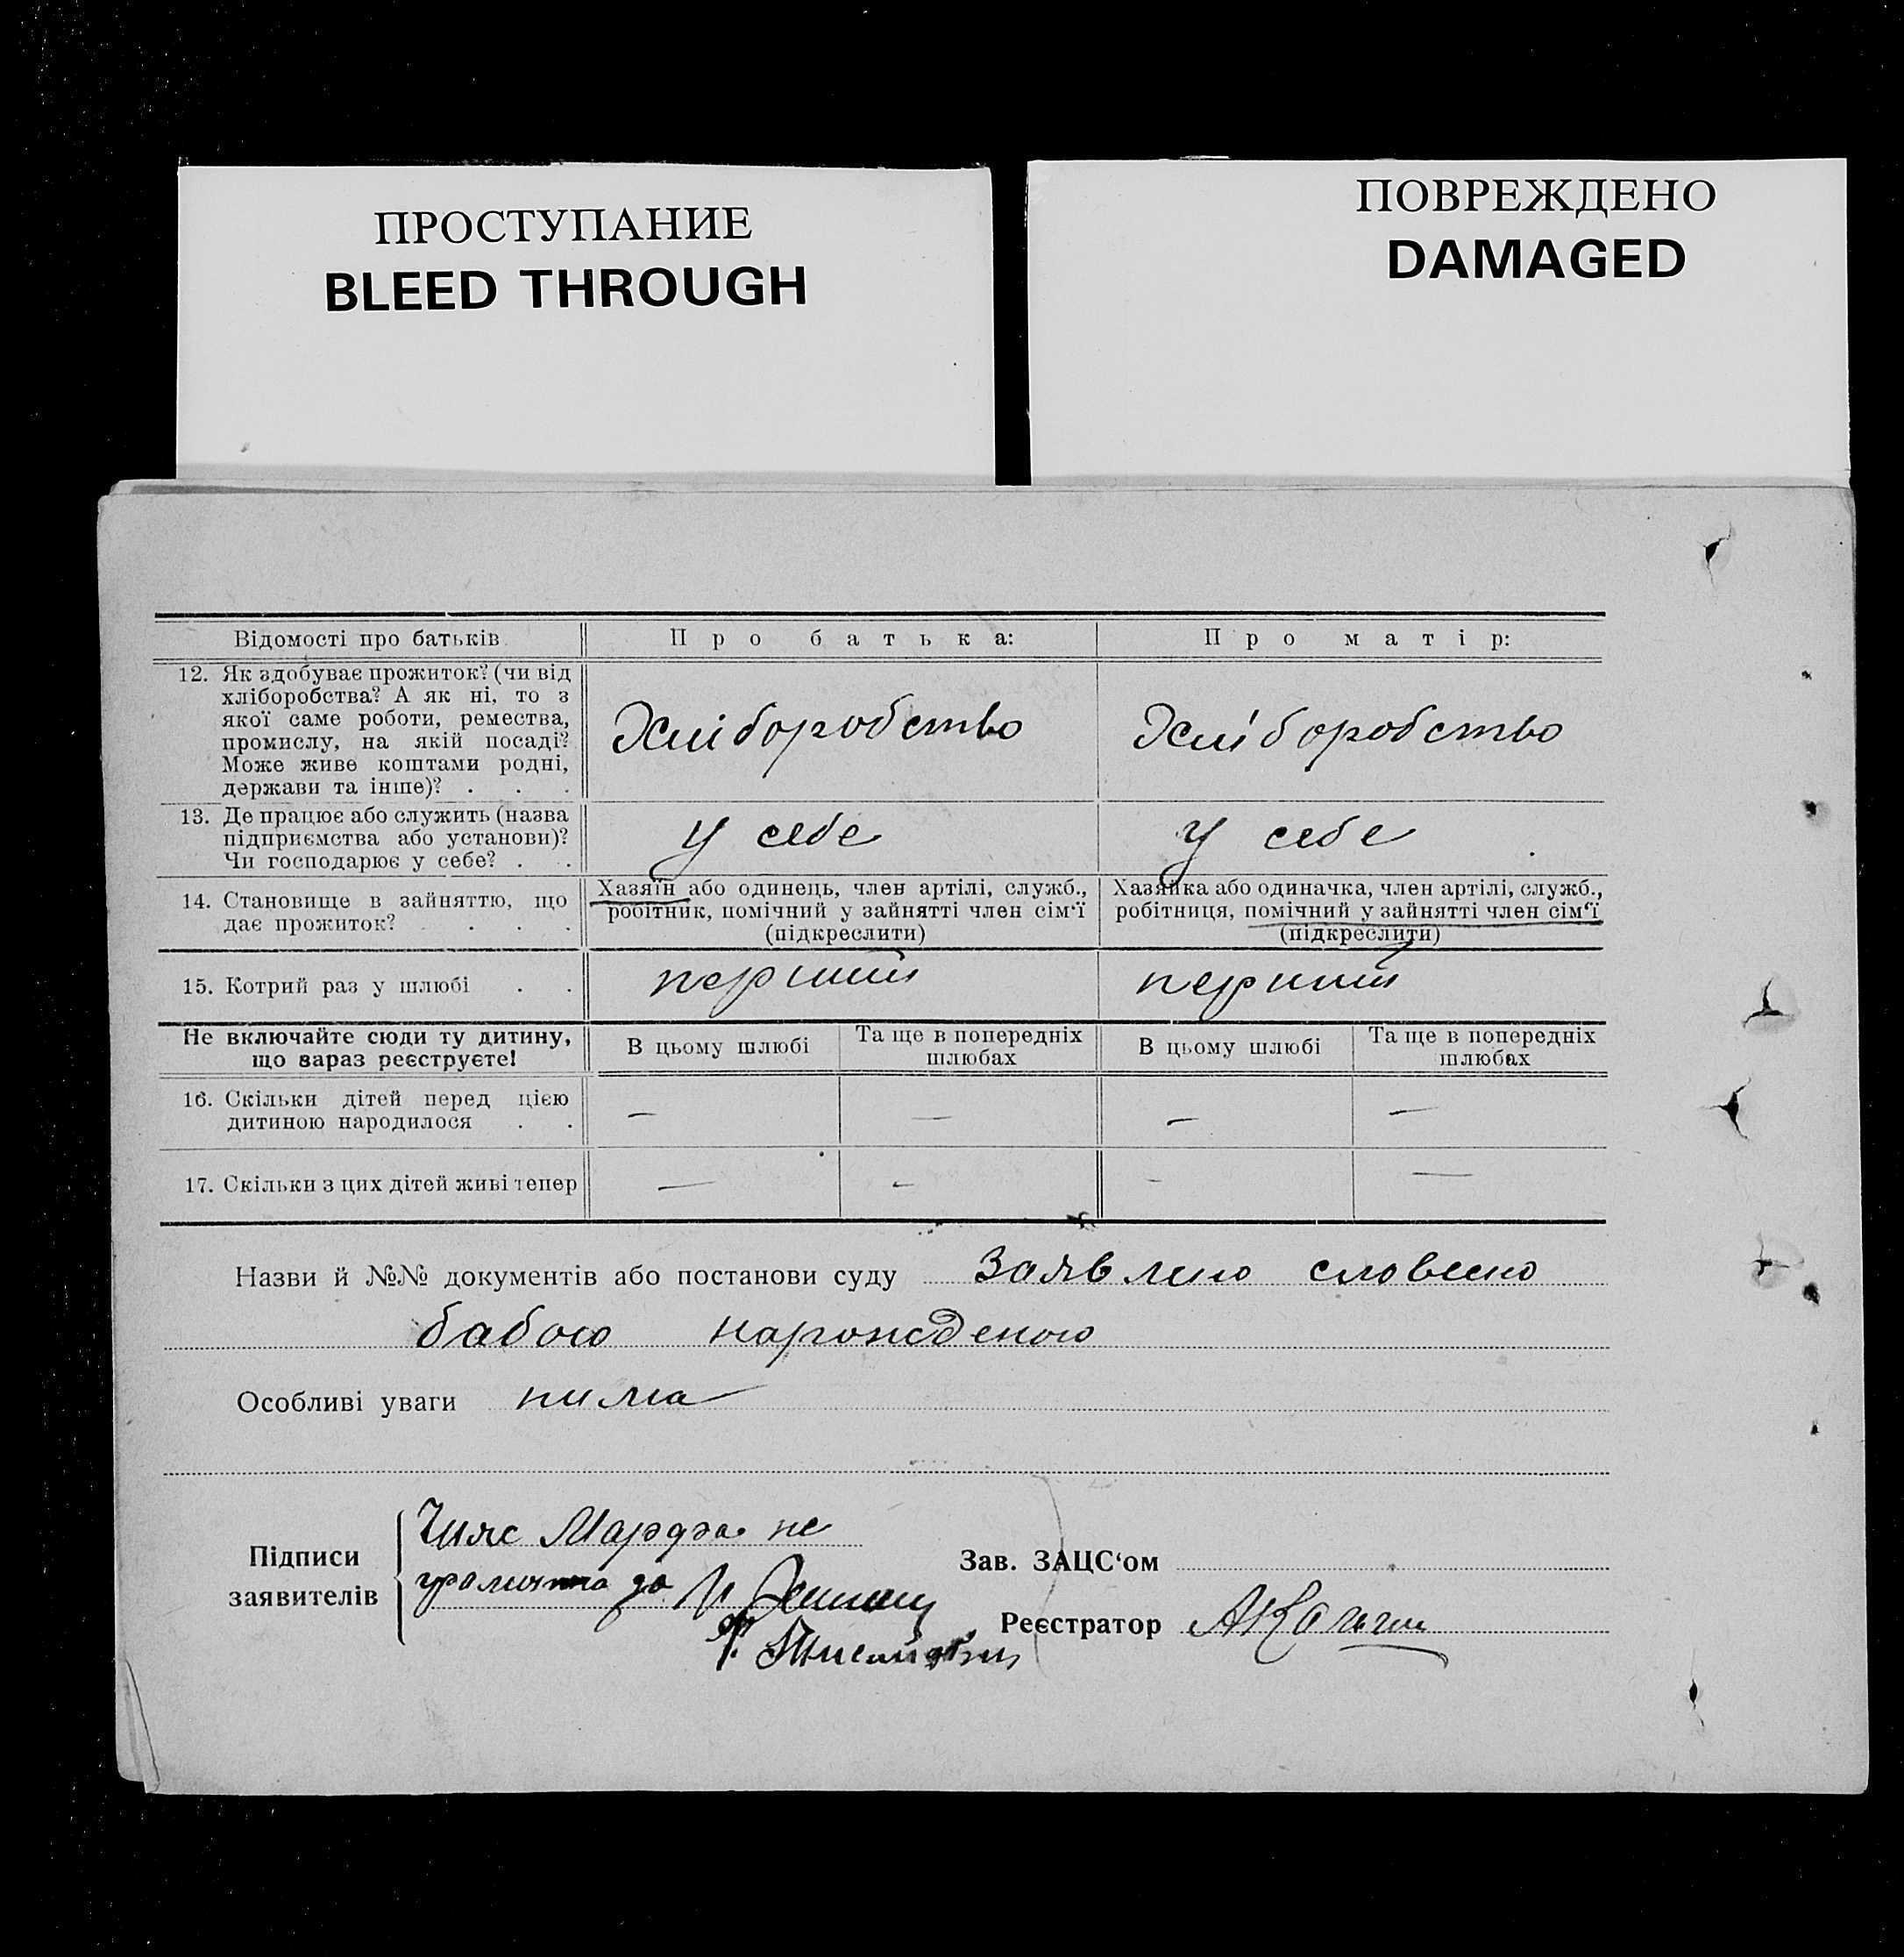 ПРОСТУПАНИЕ
BLEED THROUGH
ПОВРЕЖДЕНО
DAMAGED
Відомості про батьків
Про батька:
Про матір:
12. Як здобуває прожиток? (чи від
хліборобства? А як ні, то з
якої саме роботи, ремества,
промислу, на якій посаді?
Може живе коштами родні,
держави та інше)? . . .
Хліборобство
Хліборобство
13. Де працює або служить (назва
підприємства або установи)?
Чи господарює у себе? . .
у себе
у себе
14. Становище в зайняттю, що
дає прожиток? . . . .
Хазяїн або одинець, член артілі, служб.,
робітник, помічний у зайнятті член сім‘ї
(підкреслити)
Хазяйка або одиначка, член артілі, служб.,
робітниця, помічний у зайнятті член сім‘ї
(підкреслити)
15. Котрий раз у шлюбі . .
перший
перший
Не включайте сюди ту дитину,
що зараз реєструєте!
В цьому шлюбі
Та ще в попередніх
шлюбах
В цьому шлюбі
Та ще в попередніх
шлюбах
16. Скільки дітей перед цією
дитиною народилося . .
— — — —
17. Скільки з цих дітей живі тепер
— — — —
Назви й №№ документів або постанови суду Заявлено словесно
бабою нарожденою
Особливі уваги нима
Підписи
заявителів
Марфа не
Зав. ЗАЦС‘ом
Реєстратор